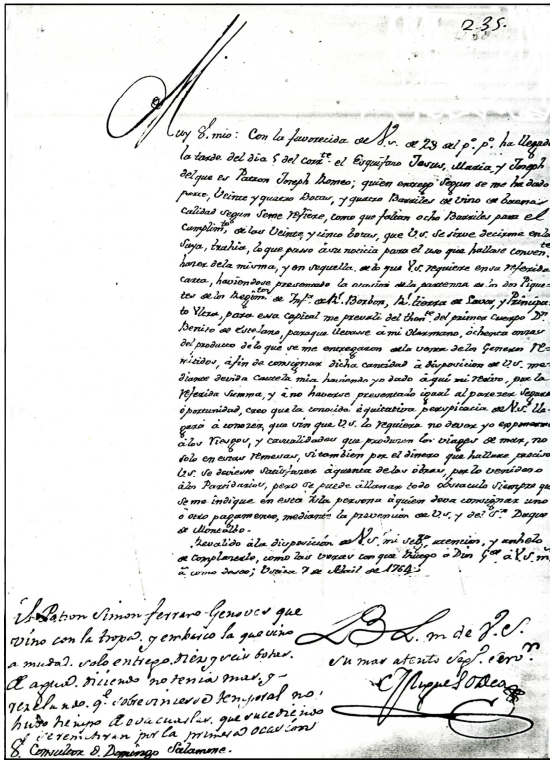 235.
Muy S.r mio: Con la favorecida de V.s. de 29 del p.o p.o ha llegado
la tarde del dia 5 del corr.te el Esquifazo Jesus, Maria, y Joseph
del que es Patron Joseph Romeo; quien entregó segun se me ha dado
parte, Veinte y quatro Botas, y quatro Barriles de vino de buena
calidad segun se me refiere, como que faltan ocho Barriles para el
cumplim.to de las Veinte, y cinco botas, que V.s. se sirve decirme en la
suya, trahia, lo que passo à su noticia para el uso que hallase conven.te
hacer de la misma, y en sequella de lo que V.s. requiere en su referida
carta, haviendose presentado la ocasion de la partenza de los dos Pique-
tes de los Regim.tos de Inf.a de R.l Borbon, R.l tierra de Lavor, y Principa-
to Vltra, para essa Capital me prevalí del Then.te del primer Cuerpo D.n
Benito de Escolano, para que llevasse à mi Hermano, ochenta onzas
del producto de lo que se me entregaron de la venta de los Generos re-
mitidos, à fin de consignar dicha cantidad à disposicion de V.s. me-
diante devida cautela mia haviendo yo dado aqui mi recivo, por la
referida summa, y à no haverse presentado igual al parecer segura
oportunidad, creo que la conocida equitativa perspicacia de V.s. lle-
gará à conocer, que sin que V.s. lo requiera no devo yo exponerme
à los riesgos, y casualidades que producen los viages de mar, no
solo en estas remesas, si tambien por el dinero que hallare preciso
V.s. se deviesse satisfazer à quenta de las obras, por lo venidero
à los Partidarios, pero se puede allanar todo obstaculo siempre que
se me indique en esta Isla persona à quien deva consignar uno
ò otro pagamento, mediante la prevencion de V.s., y del S.r Duque
de Montalbo.
Revalido à la disposicion de V.s. mi seg.ra atencion, y anhelo
de complacerle, como las veras con que ruego à Dios G.de à V.s. m.s
a.s como deseo; Ustica 7 de Abril de 1764.
B L. m de V. S.
su mas atento seg.o serv.r
Miguel Odea
El Patron Simon ferraro Genoves que
vino con la tropa, y embarco la que vino
a mudar, solo entregò, diez y seis botas
de agua, diciendo no tenia mas, y
rezelando, q.e sobreviniesse temporal no
hubo tiempo de evacuarlas, que sucediendo
se remitiran por la primera ocasion
S.r Consultor D. Domingo Salamone.